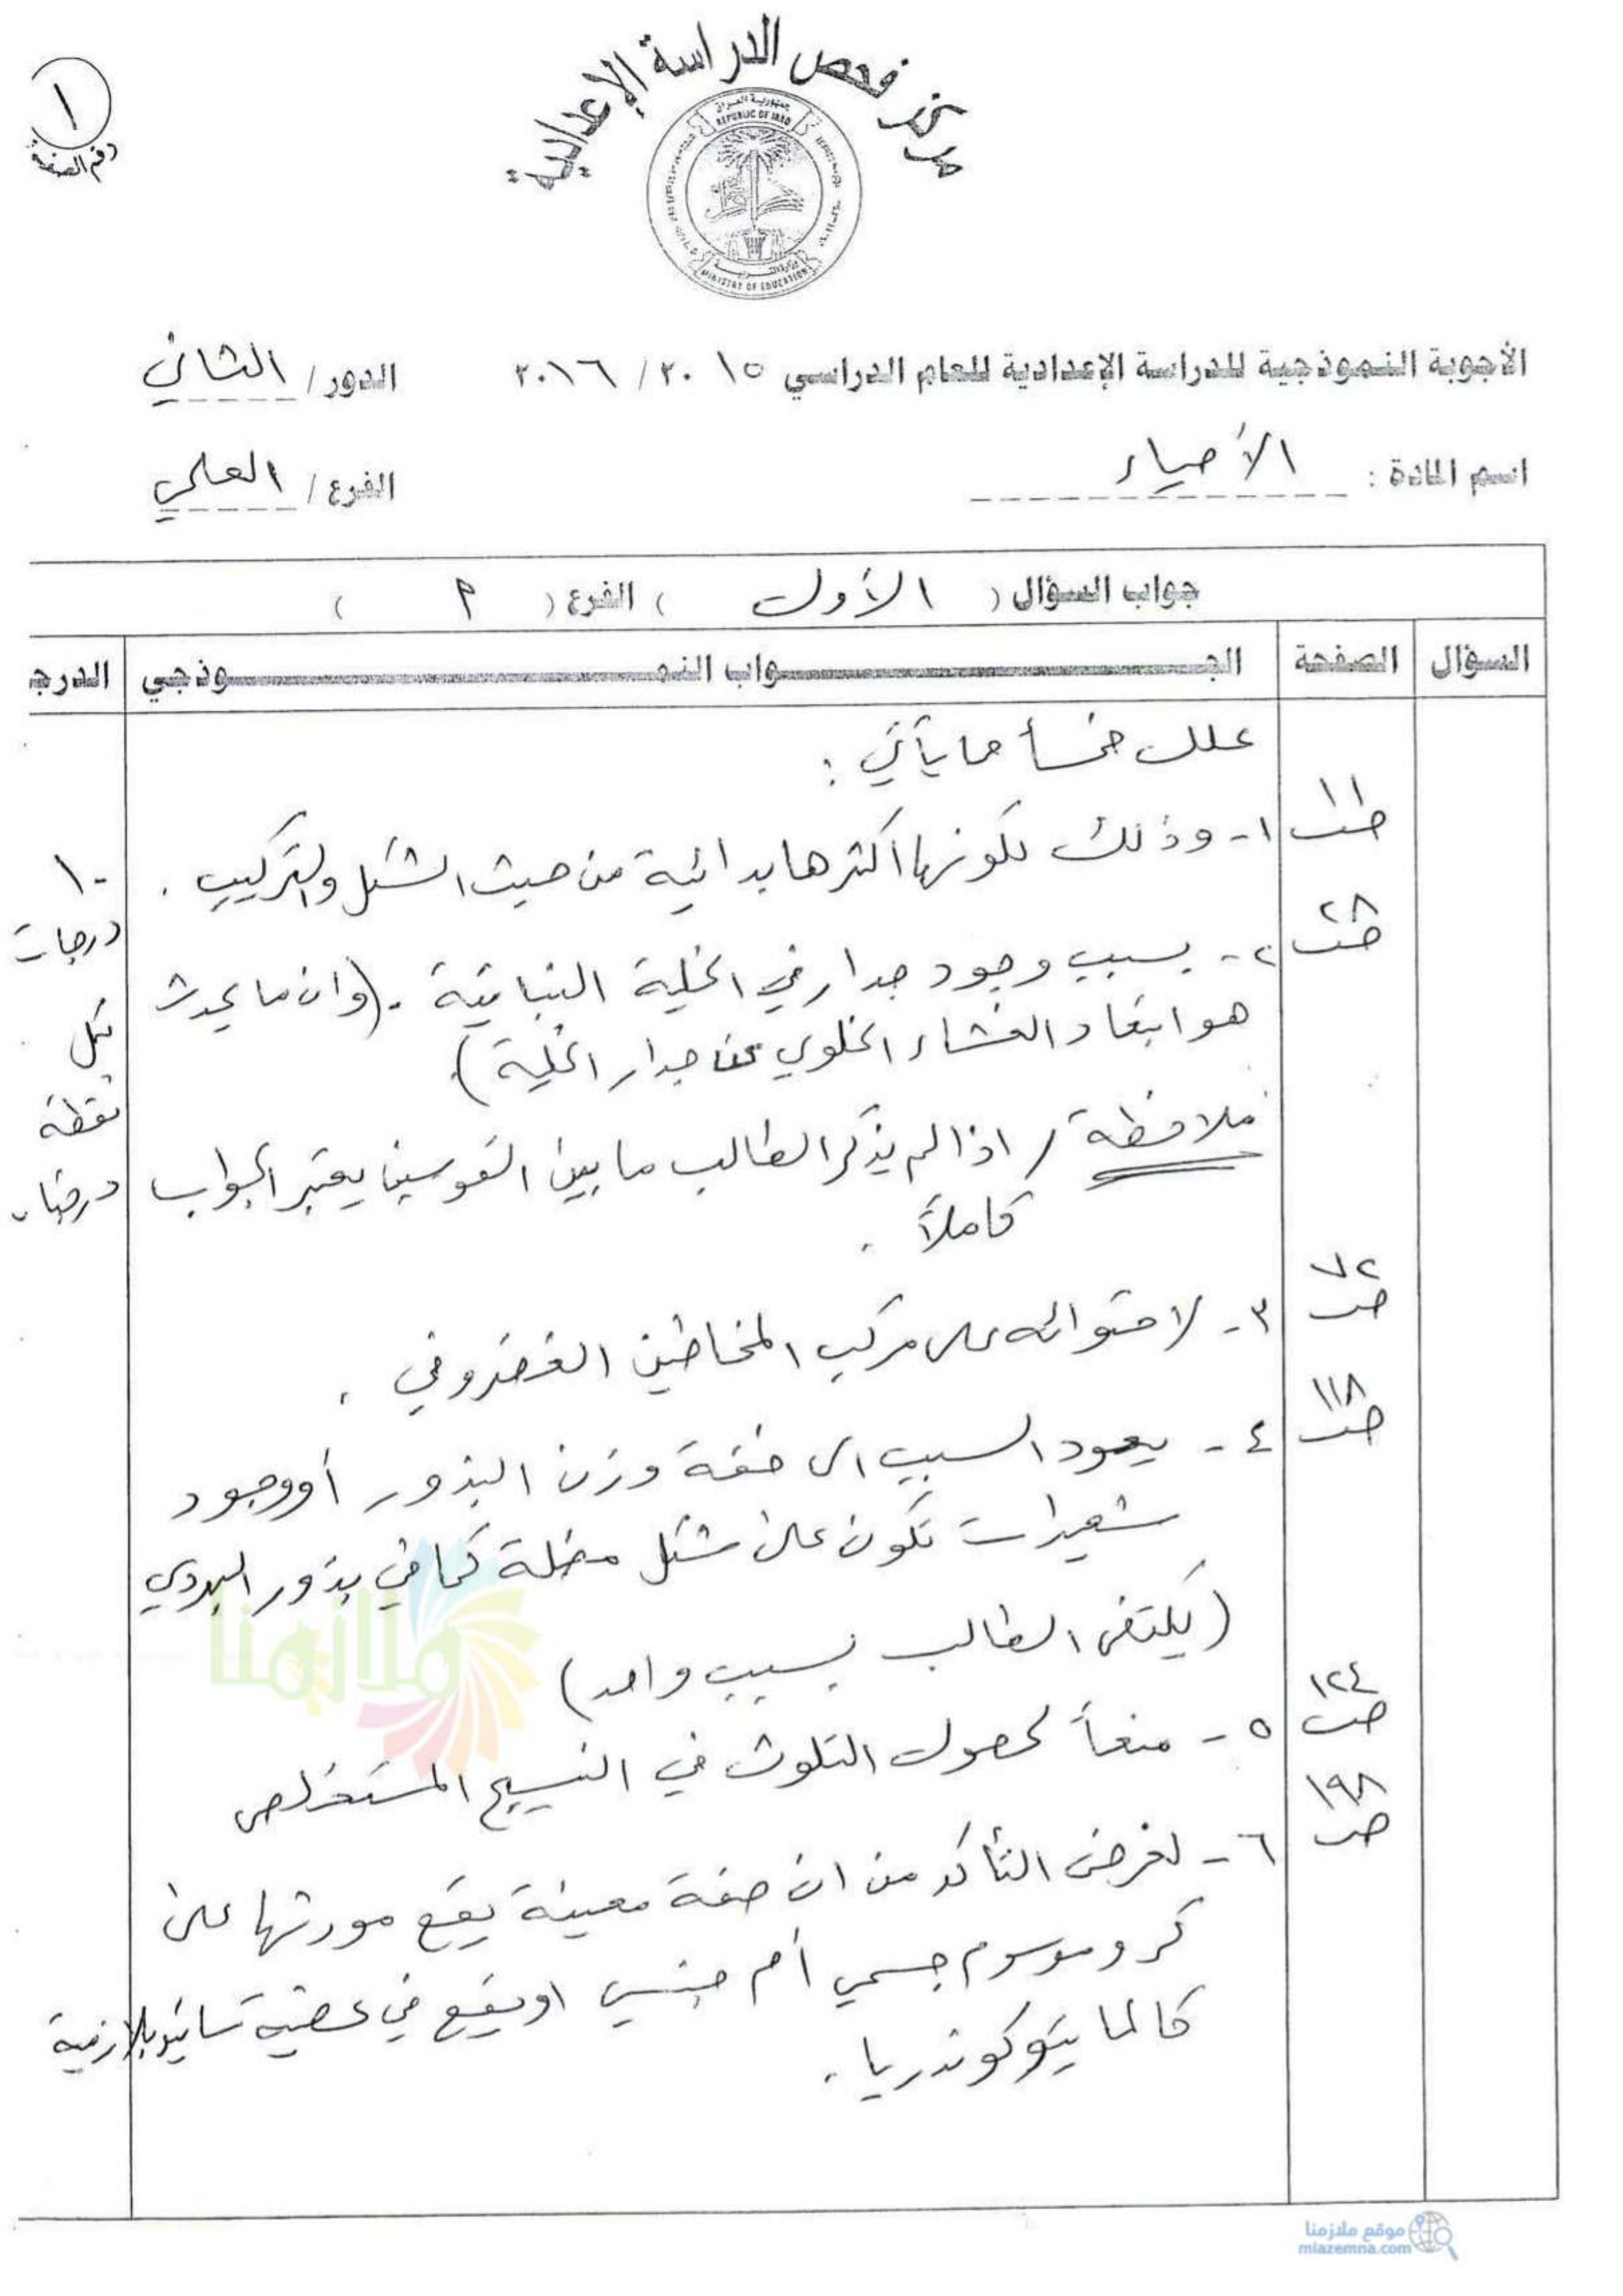 مركز فحص الدراسة الإعدادية
جمهورية العراق
REPUBLIC OF IRAQ
وزارة التربية
MINISTRY OF EDUCATION
١
رقم الصفحة
الأجوبة النموذجية للدراسة الإعدادية للعام الدراسي ٢٠١٥ / ٢٠١٦ الدور / الثاني
اسم المادة : الأحياء الفرع / العلمي
جواب السؤال ( الأول ) الفرع ( م )
السؤال الصفحة الجــواب النمــوذجي الدرج
علل خمساً مما يأتي :
ص ١١ ١- وذلك لكونها أكثرها بدائية من حيث الشكل والتركيب .
ص ٢٨ ٢- بسبب وجود جدار في الخلية النباتية . (وان ما يحدث
هو ابتعاد الغشاء الخلوي عن جدار الخلية)
ملاحظة / اذا لم يذكر الطالب ما بين القوسين يعتبر الجواب
كاملاً .
ص ٧٢ ٣- لاحتوائه على مركب المخاطين الغضروفي .
ص ١١٨ ٤- يعود السبب الى خفة وزن البذور أو وجود
شعيرات تكون على شكل مظلة كما في بذور البردي
(يكتفى الطالب بسبب واحد)
ص ١٢٤ ٥- منعاً لحصول التلوث في النسيج المستخلص
ص ١٩٨ ٦- لغرض التأكد من ان صفة معينة يقع مورثها على
كروموسوم جسمي أم جنسي او يقع في عضية سايتوبلازمية
كالمايتوكوندريا .
١٠
درجات
لكل
نقطة
درجتان
ملازمنا
موقع ملازمنا
mlazemna.com